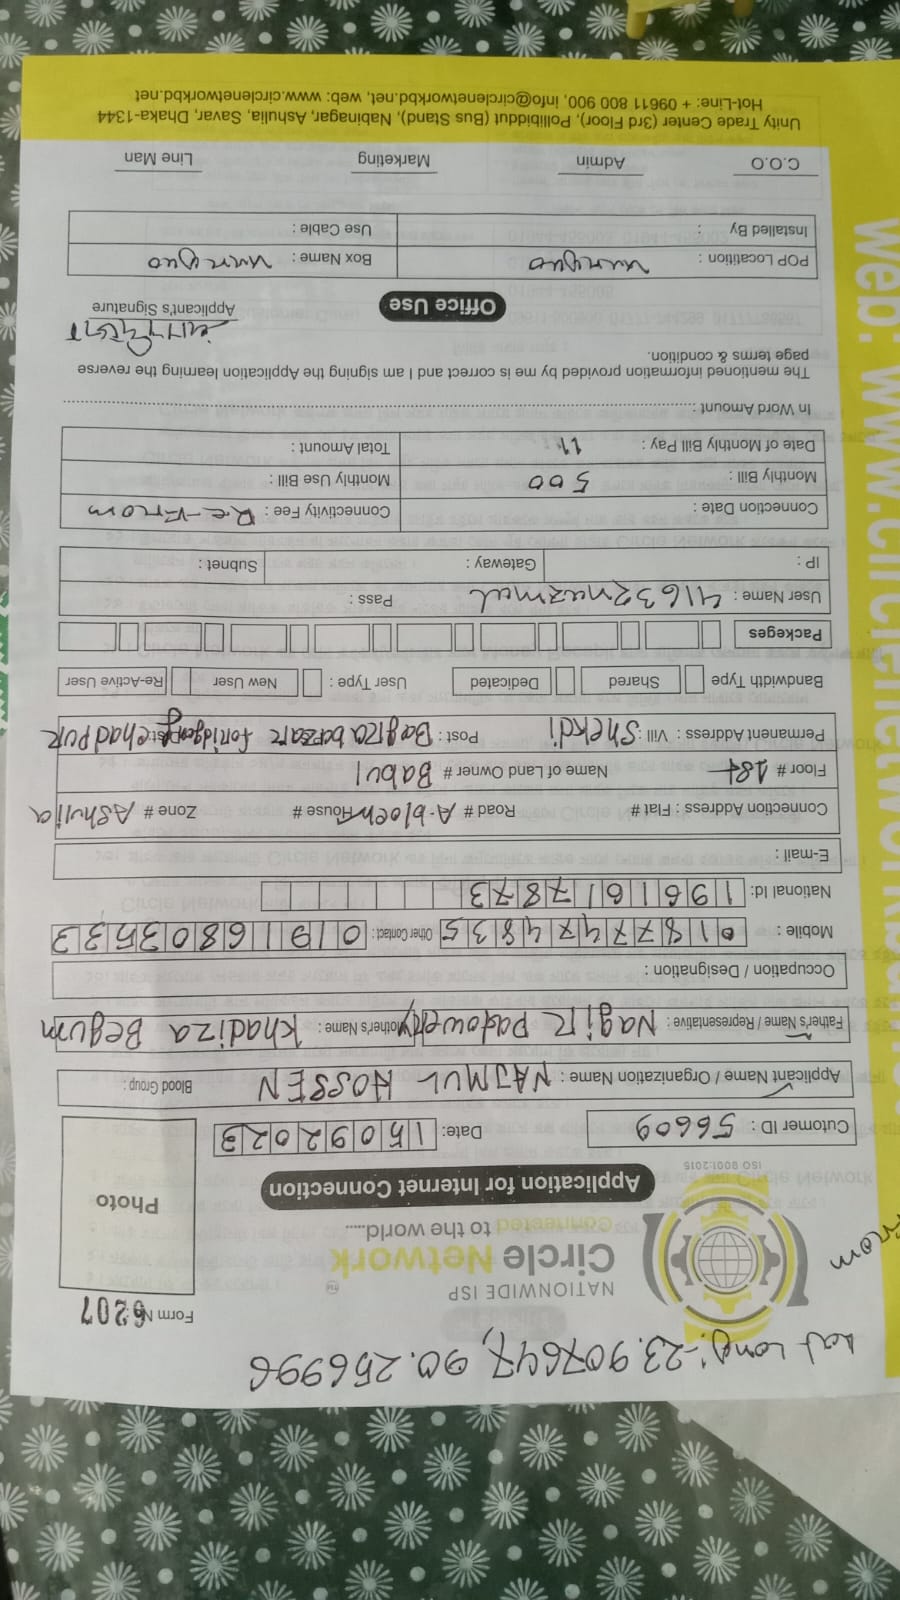 Lat Long:-23.907647, 90.256996
Form No: 6207
NATIONWIDE ISP
Circle Network
Connected to the world.....
ISO 9001:2015
Application for Internet Connection
Photo
Cutomer ID : 56609 Date: 15092023
Applicant Name / Organization Name : NAJMUL HOSSEN Blood Group :
Father's Name / Representative : Nagir Patowery Mother's Name : Khadiza Begum
Occupation / Designation :
Mobile : 01877474835 Other Contact : 01911680353 3
National Id: 1961617873
E-mail :
Connection Address : Flat # Road # A-bloch House # Zone # AShulia
Floor # 1st Name of Land Owner # Babul
Permanent Address : Vill : Shekdi Post : faridgonj chadpur
Bandwidth Type Shared Dedicated User Type : New User Re-Active User
Packeges
User Name : 41632nazmul Pass :
IP : Gateway : Subnet :
Connection Date : Connectivity Fee : Re-From
Monthly Bill : 500 Monthly Use Bill :
Date of Monthly Bill Pay : 11 Total Amount :
In Word Amount :
The mentioned information provided by me is correct and I am signing the Application learning the reverse
page terms & condition.
Applicant's Signature
Office Use
POP Locatition : Box Name :
Installed By : Use Cable :
C.O.O Admin Marketing Line Man
Unity Trade Center (3rd Floor), Pollibiddut (Bus Stand), Nabinagar, Ashulia, Savar, Dhaka-1344
Hot-Line: + 09611 800 900, info@circlenetworkbd.net, web: www.circlenetworkbd.net
web: www.circlenetworkbd.net